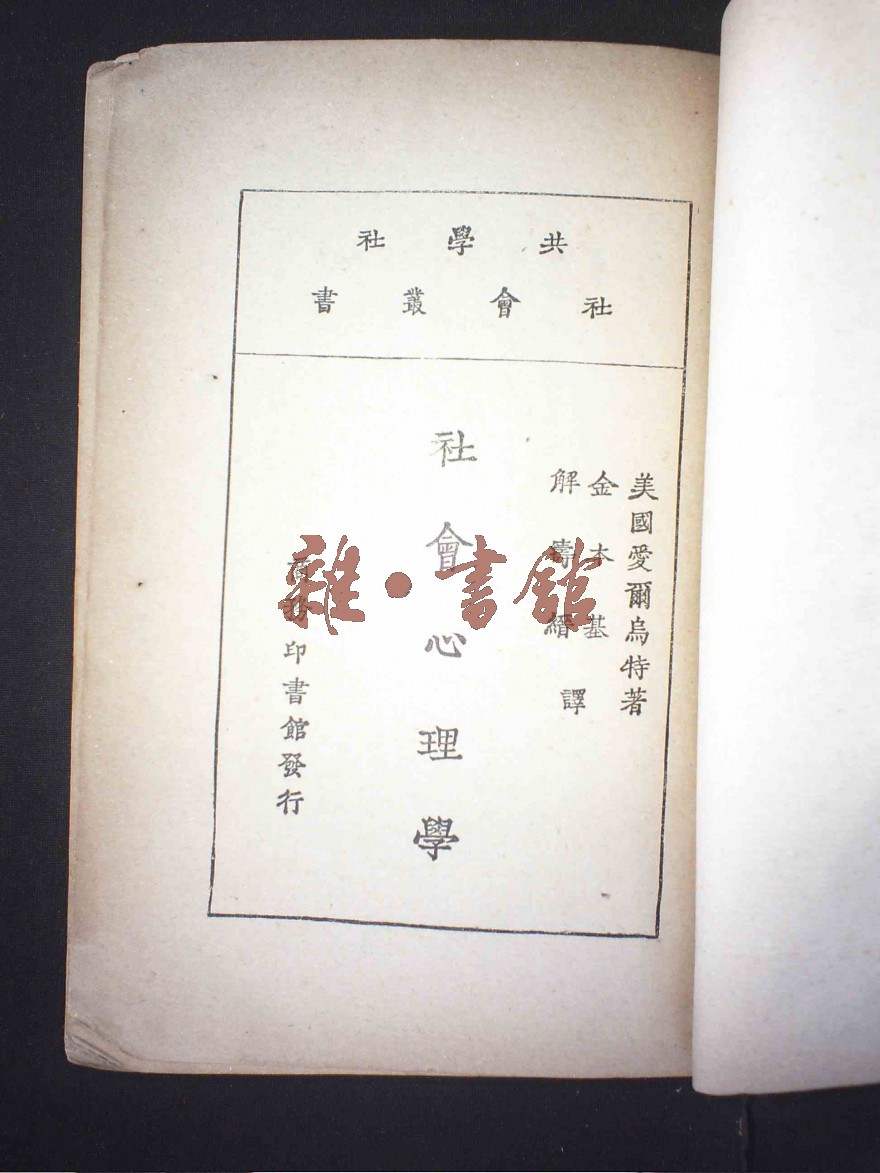 共學社
社會叢書
美國愛爾烏特著
金本基
解壽縉譯
社會心理學
商務印書館發行
雜·書館